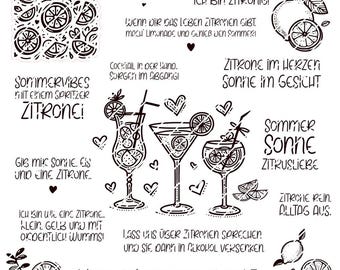 ICH BIN ZITRONIG!
WENN DIR DAS LEBEN ZITRONEN GIBT,
MACH LIMONADE UND GENIEß DEN SOMMER!
COCKTAIL IN DER HAND,
SORGEN IM ABGANG!
ZITRONE IM HERZEN
SONNE IM GESICHT
SOMMERVIBES
MIT EINEM SPRITZER
ZITRONE!
SOMMER
SONNE
ZITRUSLIEBE
GIB MIR SONNE, EIS
UND EINE ZITRONE.
ZITRONE REIN,
ALLTAG AUS.
ICH BIN WIE EINE ZITRONE.
KLEIN, GELB UND MIT
ORDENTLICH WUMMS!
LASS UNS ÜBER ZITRONEN SPRECHEN
UND SIE DANN IN ALKOHOL VERSENKEN.